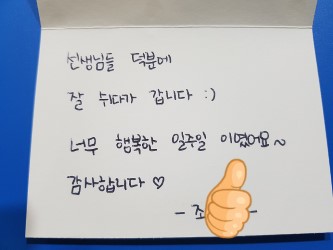 선생님들 덕분에
잘 쉬다가 갑니다 :)
너무 행복한 일주일 이였어요~
감사합니다 ♡
- 조 -